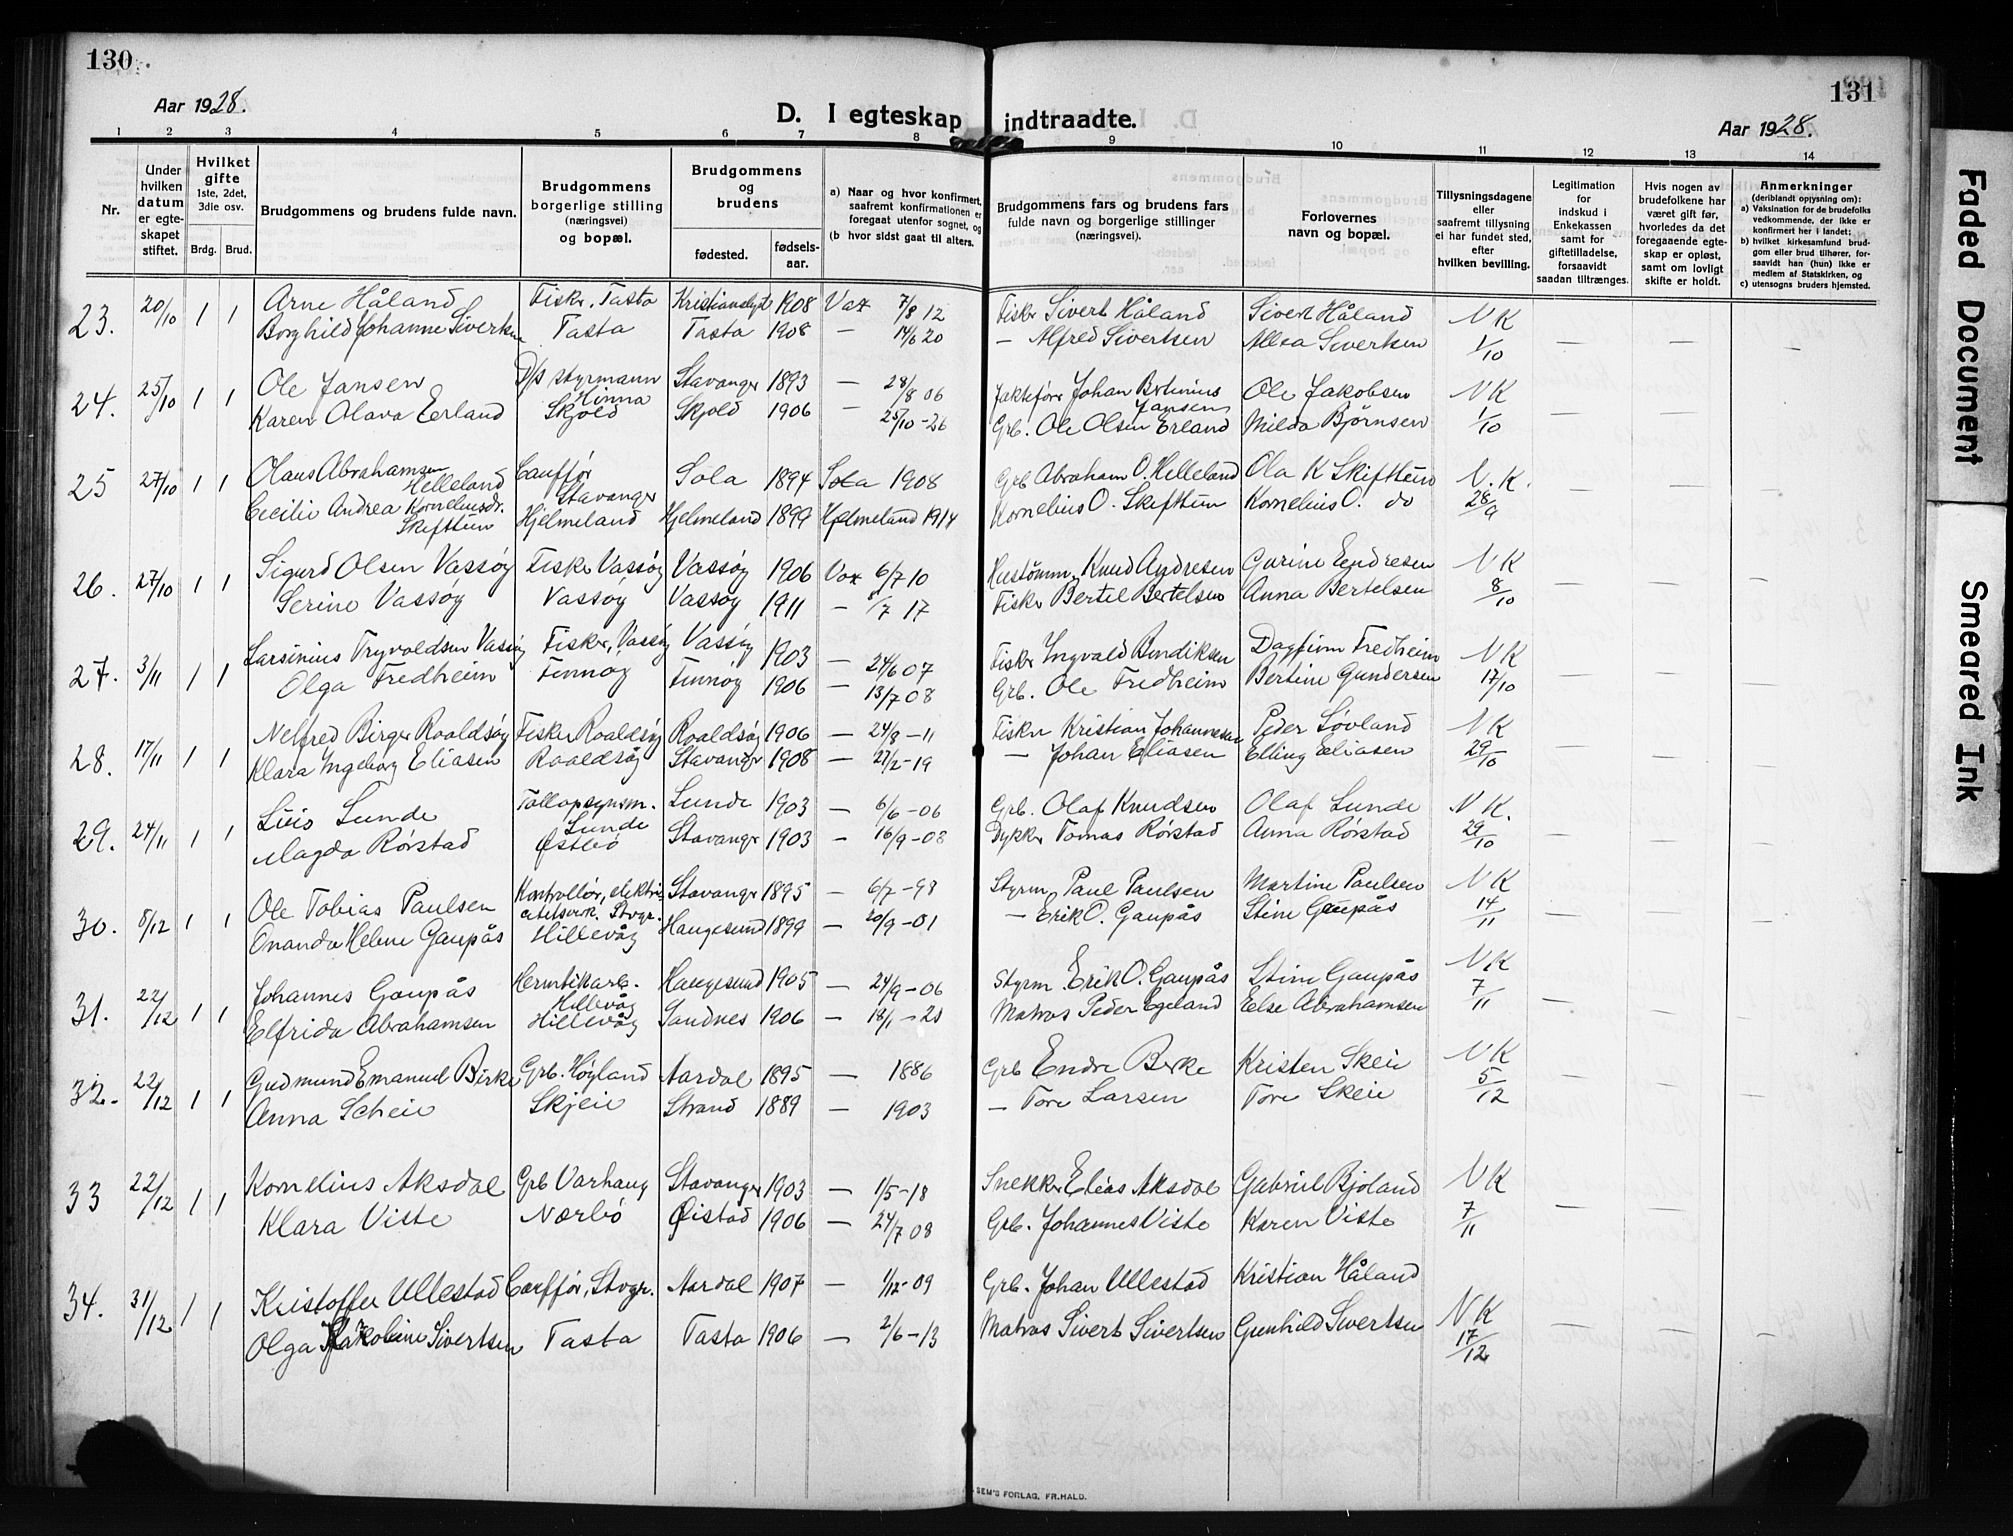 130
131
Aar 1928.
D. I egteskap indtraadte.
Aar 1928.
1 2 3 4 5 6 7 8 9 10 11 12 13 14
Nr.
Under hvilken datum er egteskapet stiftet.
Hvilket gifte 1ste, 2det, 3die osv.
Brdg. Brud.
Brudgommens og brudens fulde navn.
Brudgommens borgerlige stilling (næringsvei) og bopæl.
Brudgommens og brudens
fødested. fødselsaar.
a) Naar og hvor konfirmert, saafremt konfirmationen er foregaat utenfor sognet, og
(b hvor sidst gaat til alters.
Brudgommens fars og brudens fars fulde navn og borgerlige stillinger (næringsvei).
Forlovernes navn og bopæl.
Tillysningsdagene eller saafremt tillysning ei har fundet sted, efter hvilken bevilling.
Legitimation for indskud i Enkekassen samt for giftetilladelse, forsaavidt saadan tiltrænges.
Hvis nogen av brudefolkene har været gift før, hvorledes da det foregaaende egteskap er opløst, samt om lovligt skifte er holdt.
Anmerkninger (deriblandt opjysning om):
a) Vaksination for de brudefolks vedkommende, der ikke er konfirmert her i landet;
b) hvilket kirkesamfund brudgom eller brud tilhører, forsaavidt han (hun) ikke er medlem af Statskirken, og
c) utensogns bruders hjemsted.
23. 20/10 1 1 Arne Håland Fisker, Tasta 1908 7/8 12 Fisker Sivert Håland Sivert Håland N K
Borghild Johanne Sivertsen Tasta Tasta 1908 — 14/6 20 — Alfred Sivertsen Sivertsen 1/10 — — —
24. 25/10 1 1 Ole Jansen D/s styrmann Hinna Stavanger 1893 — 28/8 06 Johan Jansen Ole Jakobsen N K
Karen Olava Eerland Skjold Skjold 1906 — 25/10-26 Grb. Ole Olsen Erland Milda Bjørnsen 1/10 — — —
25 27/10 1 1 Olaus Abrahamsen Helleland Cauffør Stavanger Sola 1894 Sola 1908 Grb Abraham O. Helleland Ola K Skifthun N. K.
Cecilie Andrea Korneliusdr. Skifthun Hjelmeland Hjelmeland 1899 Hjelmeland 1914 Kornelius O. Skifthun Kornelius O. do 28/9 — — —
26. 27/10 1 1 Sigurd Olsen Vassøy Fisker Vassøy Vassøy 1906 6/7 10 Knud Andresen Gurine Endresen N K
Serine Vassøy Vassøy Vassøy 1911 — 8/7 17 Fisker Bertel Bertelsen Anna Bertelsen 8/10 — — —
27. 3/11 1 1 Larsinius Vassøy Fisker, Vassøy Vassøy 1903 — 24/6 07 Fisker Ingvald Bendiksen Dagfinn Fredheim N K
Olga Fredheim Finnøy Finnøy 1906 — 13/7 08 Grb. Ole Fredheim Bertine Gundersen 17/10 — — —
28. 17/11 1 1 Nelfred Birger Roaldsøy Fisker Roaldsøy Roaldsøy 1906 — 24/8-11 Fisker Kristian Johannesen Peder Søvland N K
Klara Ingeborg Eliasen Roaldsøy Stavanger 1908 — 27/2-19 — Johan Eliasen Elling Eliasen 29/10 — — —
29. 24/11 1 1 Lunde Tollopsynsm. Lunde Lunde 1903 — 6/6-06 Grb. Olaf Knudsen Olaf Lunde N K.
Magda Rørstad Østbø Stavanger 1903 — 16/9-08 Dykker Tomas Rørstad Anna Rørstad 29/10 — — —
30. 8/12 1 1 Ole Tobias Paulsen Kontrollør, elektricitetsverk. Stvgr. Stavanger 1895 — 6/7-98 Styrm Paul Paulsen Martine Paulsen N K
Onanda Helene Gaupås Hillevåg Haugesund 1899 — 20/9-01 — Erik O. Gaupås Stine Gaupås 14/11 — — —
31. 22/12 1 1 Johannes Gaupås Hermtikarb. Hillevåg Haugesund 1905 — 24/9-06 Styrm. Erik O. Gaupås Stine Gaupås N K
Elfrida Abrahamsen Hillevåg Sandnes 1906 — 18/1-20 Matros Peder Egeland Else Abrahamsen 7/11 — — —
32- 22/12 1 1 Gudmund Emanuel Birke Grb. Høyland Aardal 1895 — 1886 Grb Endre Berke Kristen Skeie N K
Anna Scheie Skjeie Strand 1889 — 1903 — Tore Larsen Tore Skeie 5/12 — — —
33 22/12 1 1 Kornelius Aksdal Grb Varhaug Stavanger 1903 — 1/5-18 Snekker Elias Aksdal Gabriel Bjoland N K
Klara Viste Nærbø Øistad 1906 — 24/7 08 Grb. Johannes Viste Karen Viste 7/11 — — —
34. 31/12 1 1 Kristoffer Ullestad Cauffør, Stvgr. Aardal 1907 — 1/12-09 Grb. Johan Ullestad Kristian Håland
Olga Jakobine Sivertsen Tasta Tasta 1906 — 2/6-13 Matros Sivert Sivertsen Gunhild Sivertsen N K 17/12 — — —
SEM'S FORLAG, FR.HALD.
Faded Document
Smeared Ink